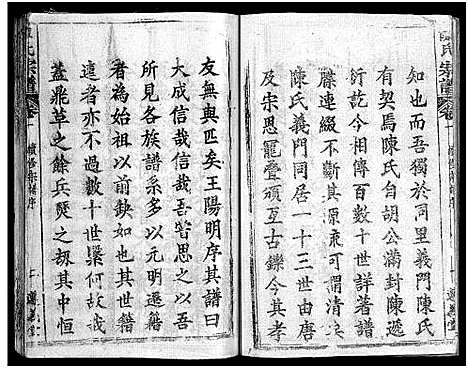 知也而吾獨於同里義門陳氏
有契焉陳氏自胡公滿封陳遞
衍於今相傳百數十世詳著譜
牒連綴不斷其源永可謂清矣
陳氏義門同居一十三世由唐
及宋恩寵疊頒亙古鑠今其孝
友無與匹矣王陽明序其譜曰
大成信哉信哉吾嘗思之以吾
所見各族譜系多以元明遷籍
者為始祖而前缺如也其世籍
遠者亦不過數十世槩何故哉
蓋鼎革之餘兵燹之刼其中恒